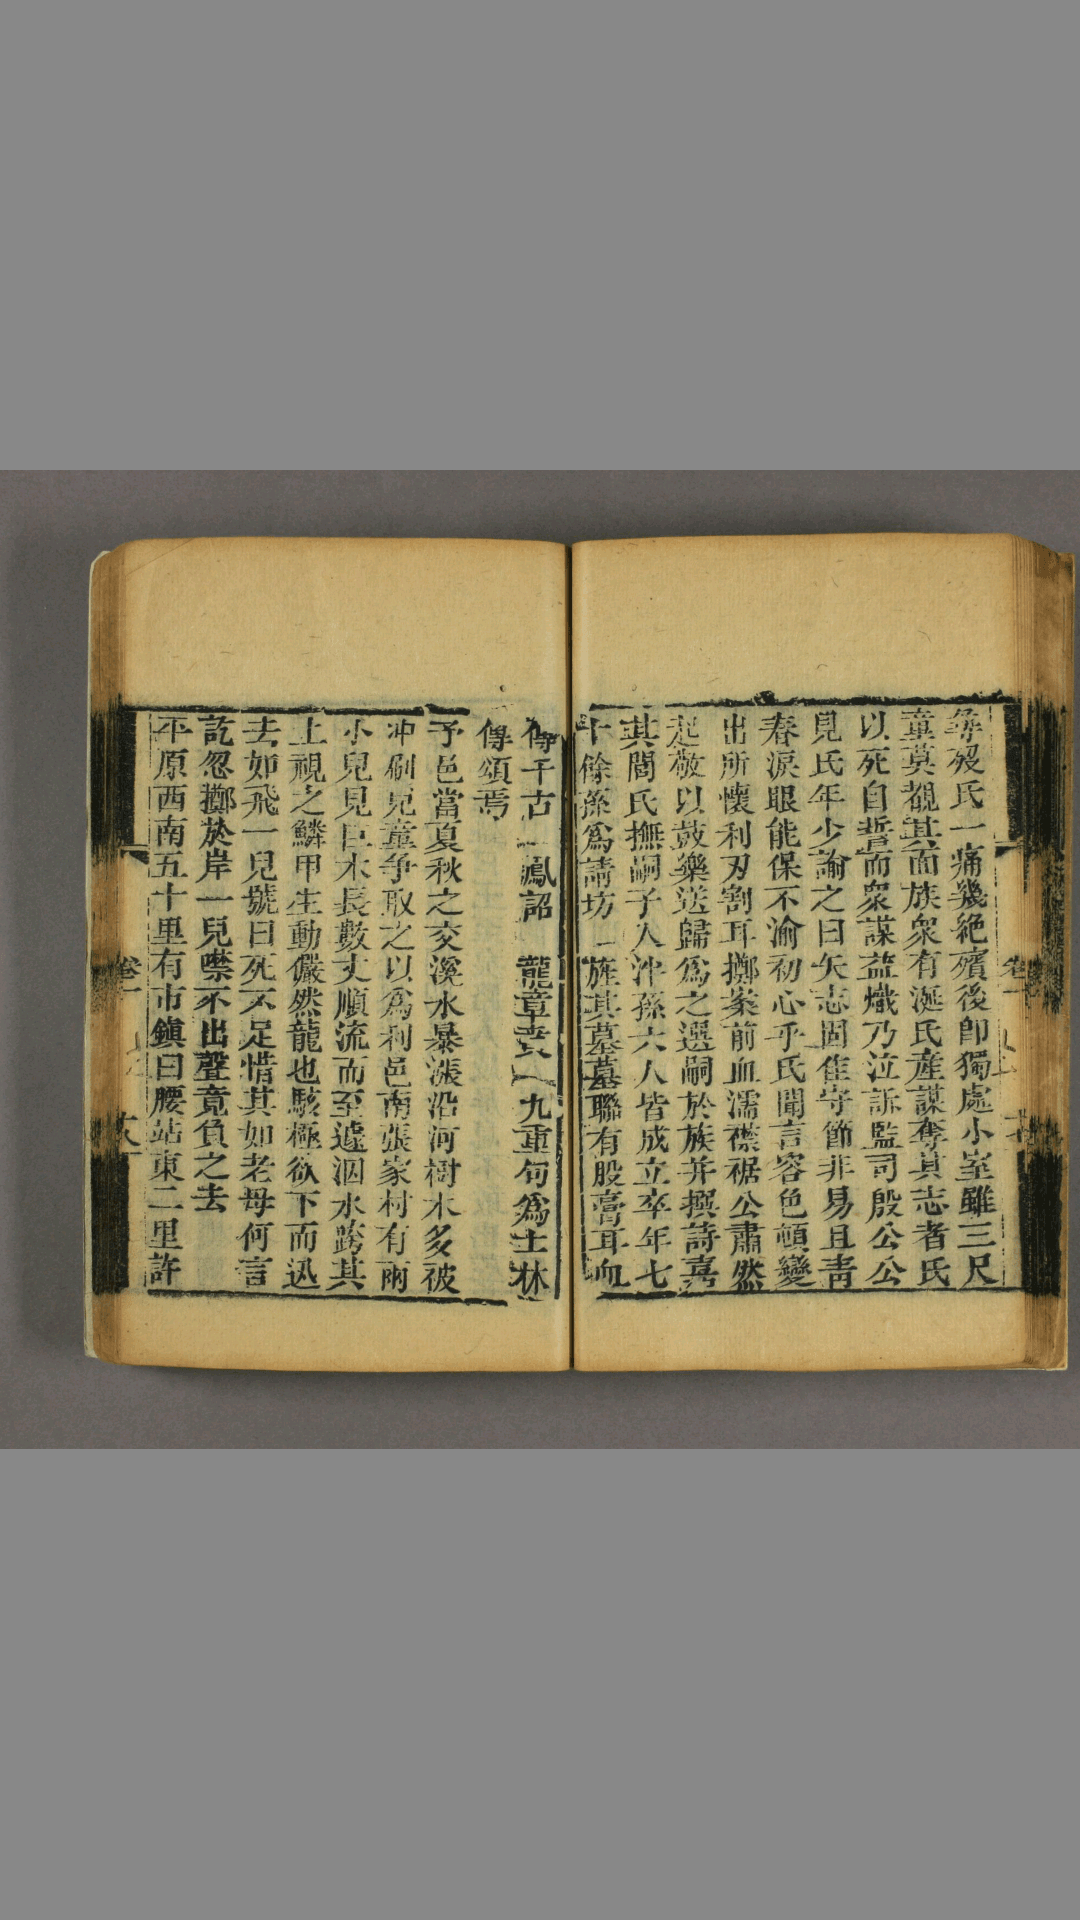 歿氏一痛幾絕殯後卽獨處小室雖三尺
童莫覩其面族衆有涎氏產謀奪其志者氏
以死自誓而衆謀益熾乃泣訴監司殷公公
見氏年少諭之曰矢志固佳守節非易且靑
春淚眼能保不渝初心乎氏聞言容色頓變
出所懷利刃割耳擲案前血濡襟裾公肅然
起敬以鼓樂送歸爲之選嗣於族并撰詩嘉
其閭氏撫嗣子入泮孫六人皆成立卒年七
十餘孫爲請坊旌其墓墓聯有股膏耳血
傳千古鳳詔龍章賁九重句爲士林
傳頌焉
予邑當夏秋之交溪水暴漲沿河樹木多被
冲刷兒童争取之以爲利邑南張家村有兩
小兒見巨木長數丈順流而至遽泅水跨其
上視之鱗甲生動儼然龍也駭極欲下而迅
去如飛一兒號曰死不足惜其如老母何言
訖忽擲於岸一兒噤不出聲竟負之去
平原西南五十里有市鎭曰腰站東二里許
卷一
卷一